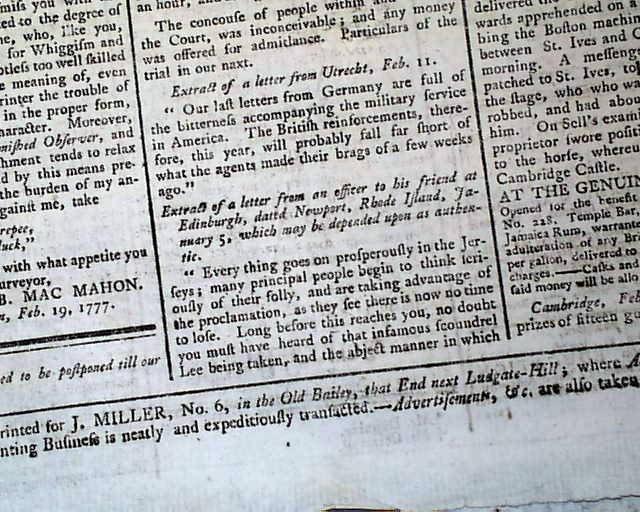 miss you with
ed to the degree of
ne, who, like you,
for Whiggism and
btless too well skilled
e meaning of, even
rinter the trouble of
in the proper form,
haracter. Moreover,
mished Observer, and
hment tends to relax
d by this means pre-
the burden of my an-
gainst me, take
repee,
luck,"
with what appetite you
urveyor,
B. MAC MAHON.
n, Feb. 19, 1777.
ed to be postponed till our
an hour, and
The concouse of people within and
the Court, was inconceivable; and any money
was offered for admittance. Particulars of the
trial in our next.
Extract of a letter from Utrecht, Feb. 11.
“ Our last letters from Germany are full of
the bitterness accompanying the military service
in America. The British reinforcements, there-
fore, this year, will probably fall far short of
what the agents made their brags of a few weeks
ago.”
Extract of a letter from an officer to his friend at
Edinburgh, dated Newport, Rhode Island, Ja-
nuary 5, which may be depended upon as authen-
tic.
“ Every thing goes on prosperously in the Jer-
seys; many principal people begin to think seri-
ously of their folly, and are taking advantage of
the proclamation, as they see there is now no time
to lose. Long before this reaches you, no doubt
you must have heard of that infamous scoundrel
Lee being taken, and the abject manner in which
delivered the
wards apprehended on a
bing the Boston machin
between St. Ives and C
morning. A messenge
patched to St. Ives, tol
the stage, who who wa
robbed, and had abo
him. On Sell's exami
proprietor swore posit
to the horse, whereu
Cambridge Castle.
AT THE GENUIN
Opened for the benefit
No. 218. Temple Bar
Jamaica Rum, warrante
adulteration of any Br
per gallon, delivered to
charges.—Casks and
said money will be allo
Cambridge, Fe
prizes of fifteen gu
rinted for J. MILLER, No. 6, in the Old Bailey, that End next Ludgate-Hill; where A
nting Business is neatly and expeditiously transacted.—Advertisements, &c. are also taken